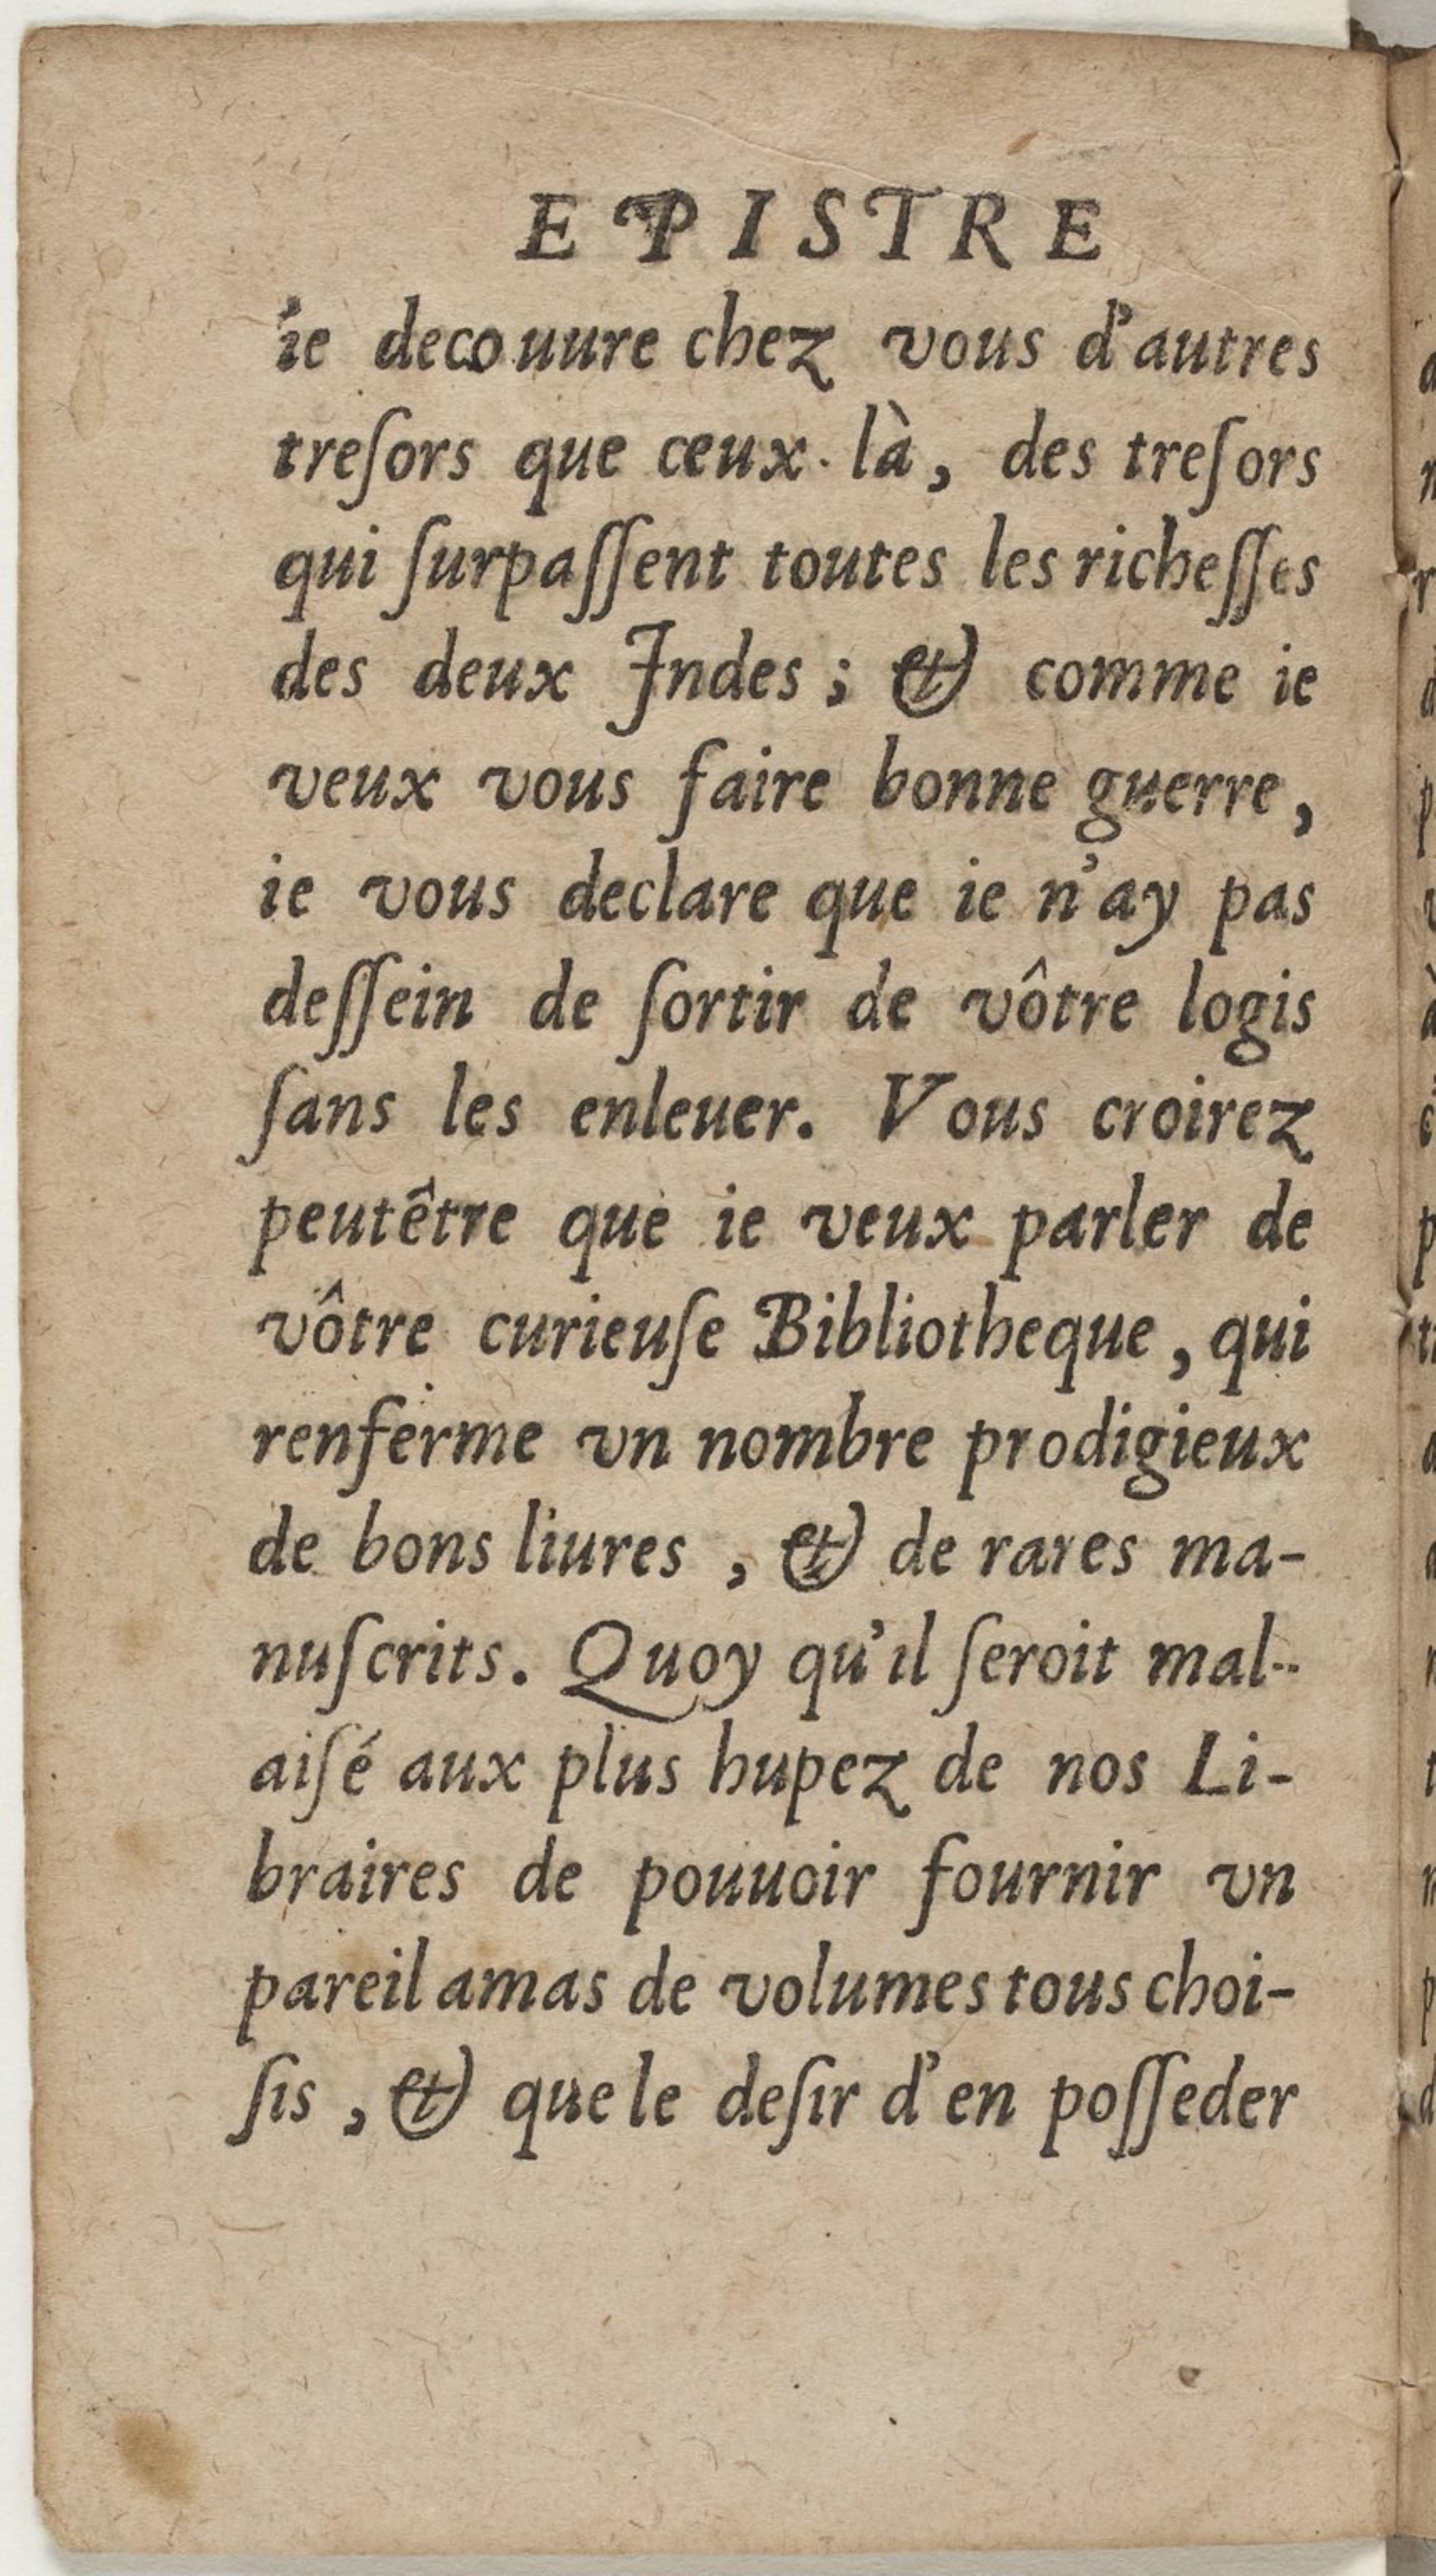 EPISTRE
ie decouure chez vous d'autres
treſors que ceux-là, des treſors
qui ſurpaſſent toutes les richeſſes
des deux Indes ; & comme ie
veux vous faire bonne guerre,
ie vous declare que ie n'ay pas
deſſein de ſortir de vôtre logis
ſans les enleuer. Vous croirez
peutêtre que ie veux parler de
vôtre curieuſe Bibliotheque, qui
renferme vn nombre prodigieux
de bons liures, & de rares ma-
nuſcrits. Quoy qu'il ſeroit mal-
aiſé aux plus hupez de nos Li-
braires de pouuoir fournir vn
pareil amas de volumes tous choi-
ſis, & que le deſir d'en poſſeder